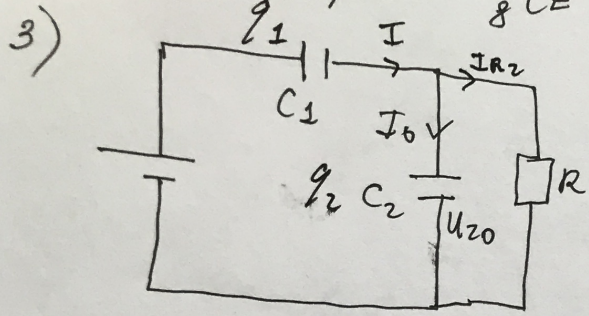 8 CE
3)
q1 I IR2
C1 I0
q2 C2 U20 R